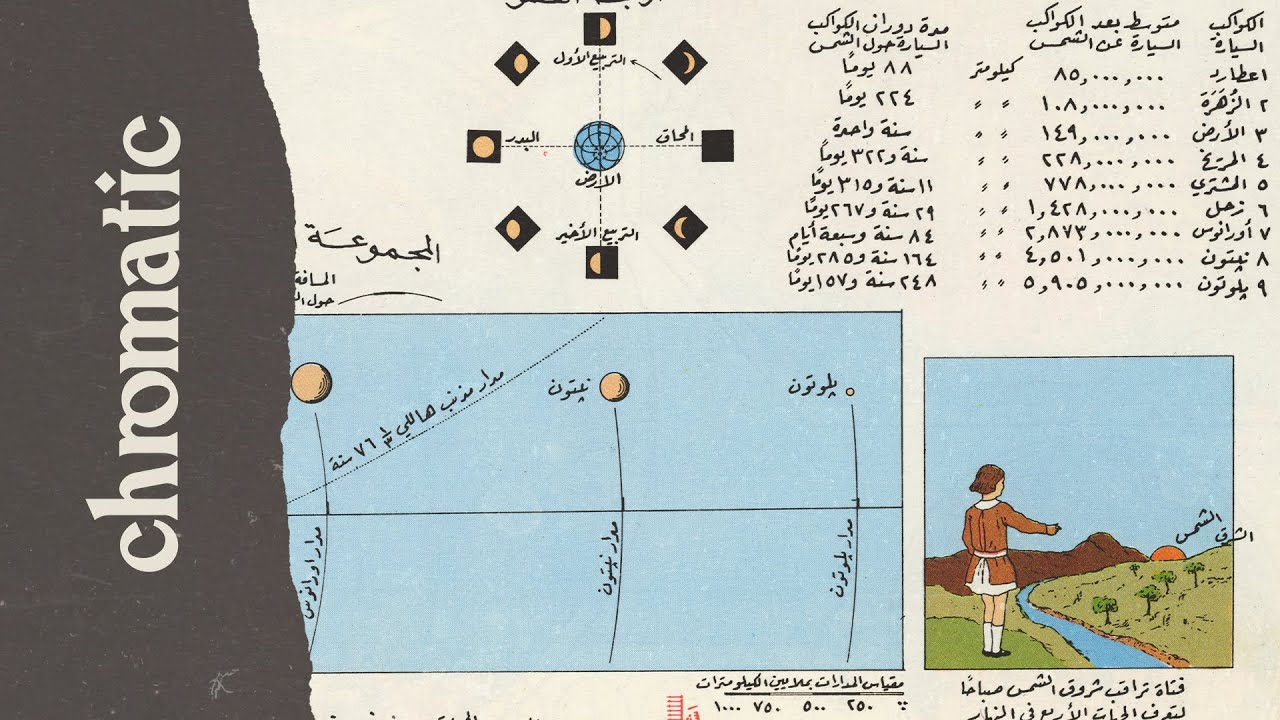 chromatic
التربيع الأول
البدر
المحاق
الأرض
التربيع الأخير
المجموعة
المسافة
حول
الكواكب السيارة
متوسط بعد الكواكب السيارة عن الشمس
مدة دوران الكواكب السيارة حول الشمس
١ عطارد ٨٥,٠٠٠,٠٠٠ كيلومتر ٨٨ يومًا
٢ الزُهَرَة ١٠٨,٠٠٠,٠٠٠ " " ٢٢٤ يومًا
٣ الأرض ١٤٩,٠٠٠,٠٠٠ " " سنة واحدة
٤ المريخ ٢٢٨,٠٠٠,٠٠٠ " " سنة و٣٢٢ يوماً
٥ المشتري ٧٧٨,٠٠٠,٠٠٠ " " ١١ سنة و٣١٥ يومًا
٦ زحل ١,٤٢٨,٠٠٠,٠٠٠ " " ٢٩ سنة و٢٦٧ يومًا
٧ أورانوس ٢,٨٧٣,٠٠٠,٠٠٠ " " ٨٤ سنة وسبعة أيام
٨ نپتون ٤,٥٠١,٠٠٠,٠٠٠ " " ١٦٤ سنة و٢٨٥ يومًا
٩ پلوتون ٥,٩٠٥,٠٠٠,٠٠٠ " " ٢٤٨ سنة و١٥٧ يومًا
پلوتون
نپتون
مدار مذنب هاللي ٧٦ ⅓ سنة
مدار پلوتون
مدار نپتون
مدار اورانوس
الشمس
الشرق
مقياس المدارات بملايين الكيلومترات
٢٥٠ ٥٠٠ ٧٥٠ ١٠٠٠
فتاة تراقب شروق الشمس صباحًا
لتعرف الجهات الأربع في النهار